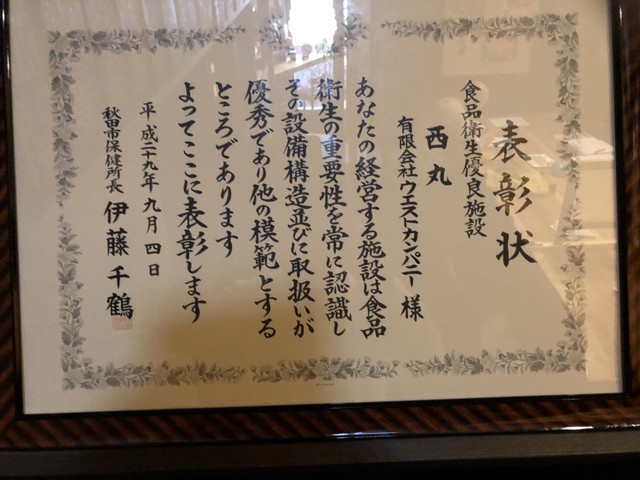 表彰状
食品衛生優良施設
西丸
有限会社ウエストカンパニー 様
あなたの経営する施設は食品
衛生の重要性を常に認識し
その設備構造並びに取扱いが
優秀であり他の模範とする
ところであります
よってここに表彰します
平成二十九年九月四日
秋田市保健所長 伊藤千鶴